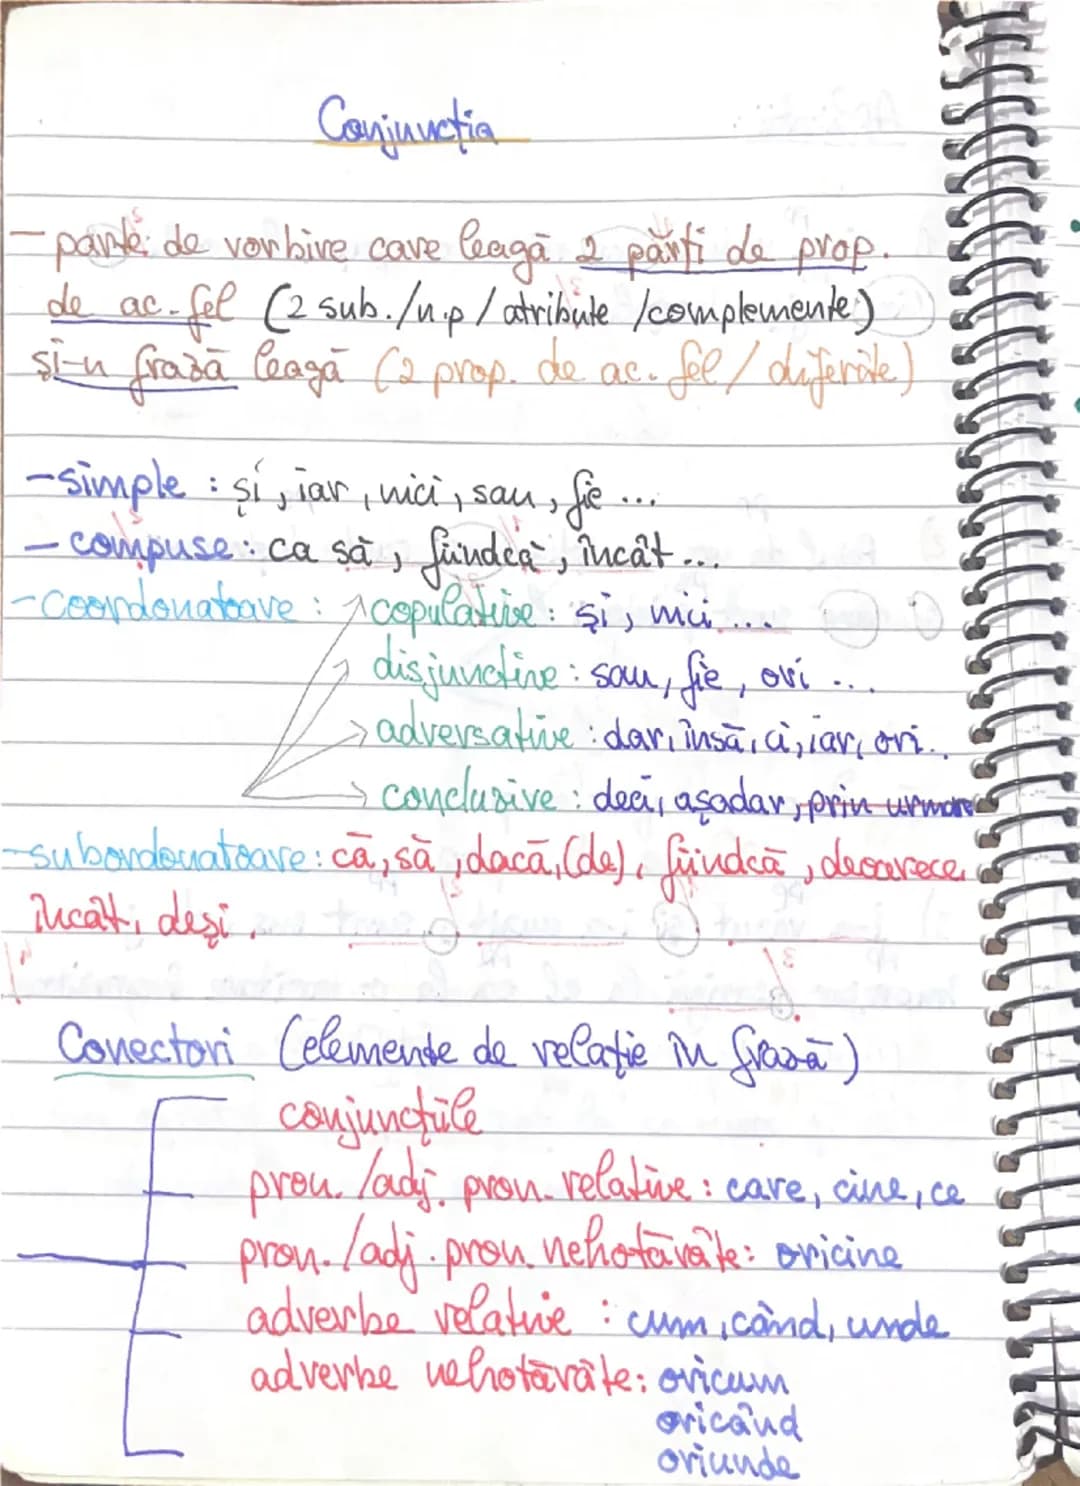 Conjuncția
- parte de vorbire care leagă 2 părți de prop.
de ac. fel (2 sub./n.p / atribute /complemente)
și-n frază leagă (2 prop. de ac. fel / diferite)
- simple : și, iar, nici, sau, fie ...
- compuse : ca să, fiindcă, încât ...
- Coordonatoare : copulative : și, nici ...
disjunctive : sau, fie, ori ...
adversative : dar, însă, ci, iar, ori..
conclusive : deci, așadar, prin urmare
- subordonatoare : că, să, dacă, (de), fiindcă, deoarece,
încât, deși.
Conectori (elemente de relație în frază)
conjuncțiile
pron. /adj. pron. relative : care, cine, ce
pron. /adj. pron. nehotărâte : oricine
adverbe relative : cum, când, unde
adverbe nehotărâte : oricum
oricând
oriunde